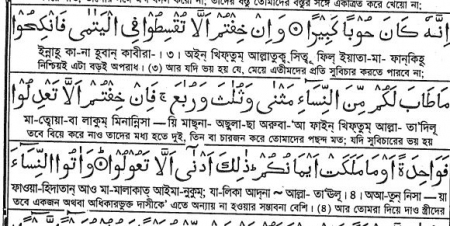 إِنَّهُ كَانَ حُوبًا كَبِيرًا ۝ وَإِنْ خِفْتُمْ أَلَّا تُقْسِطُوا فِي الْيَتٰمٰى فَانْكِحُوا
ইন্নাহূ কা-না হূবান্ কাবীরা-। ৩। অইন্ খিফ্তুম্ আল্লাতুক্ব্ সিত্বূ ফিল্ ইয়াতা-মা- ফান্‌কিহূ
নিশ্চয়ই এটা বড়ই অপরাধ। (৩) আর যদি ভয় হয় যে, মেয়ে এতীমদের প্রতি সুবিচার করতে পারবে না;
مَا طَابَ لَكُمْ مِّنَ النِّسَاءِ مَثْنٰى وَثُلٰثَ وَرُبٰعَ ۚ فَإِنْ خِفْتُمْ أَلَّا تَعْدِلُوا
মা-ত্বোয়া-বা লাকুম্ মিনান্নিসা — য়ি মাছ্না- অছুলা-ছা অরুবা-'আ ফাইন্ খিফ্তুম্ আল্লা- তা'দিলূ
তবে বিয়ে করে নাও তাদের মধ্য হতে দুই, তিন বা চারজন করে তোমাদের পছন্দ মত; যদি সুবিচারের ভয় হয়
فَوَاحِدَةً أَوْ مَا مَلَكَتْ أَيْمَانُكُمْ ۚ ذٰلِكَ أَدْنٰى أَلَّا تَعُولُوا ۝ وَآتُوا النِّسَاءَ
ফাওয়া-হিদাতান্ আও মা-মালাকাত্ আইমা-নুকুম্; যা-লিকা আদ্না ~ আল্লা- তা'ঊলূ। ৪। অআ-তুন্ নিসা — য়া
তবে একজন অথবা অধিকারভুক্ত দাসীকে এতে অন্যায় না হওয়ার সম্ভাবনা বেশি। (৪) আর তোমরা দিয়ে দাও স্ত্রীদের